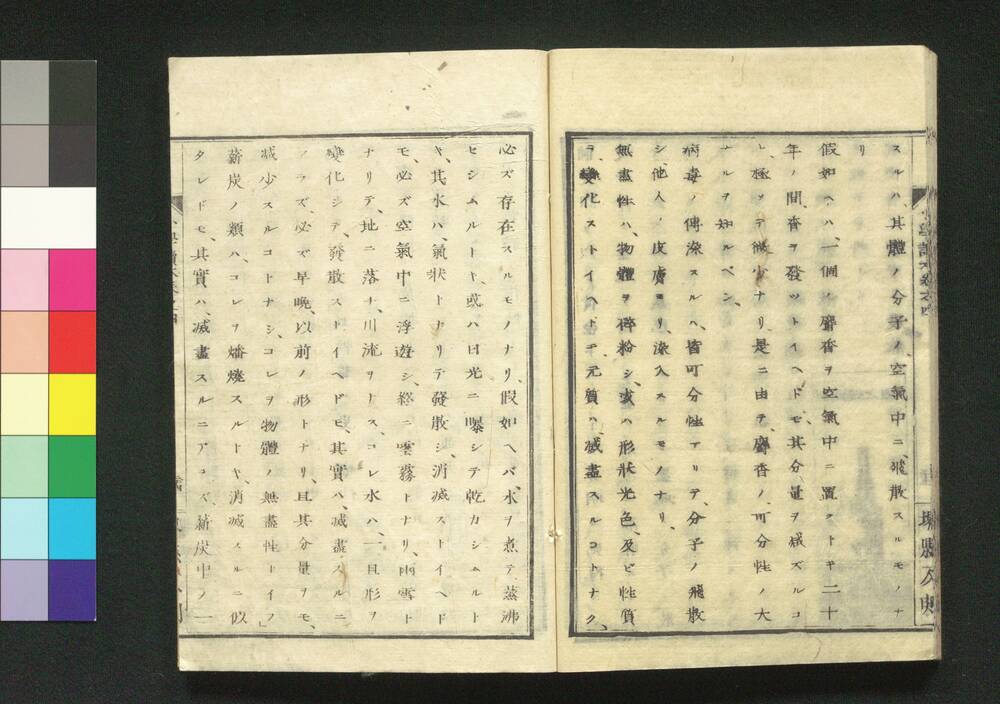 スルハ、其體ノ分子ノ、空氣中ニ、飛散スルモノナ
リ
假如ヘハ、一個ノ麝香ヲ空氣中ニ置クトキ二十
年ノ間、香ヲ發ツトイヘドモ、其分量ヲ減ズルコ
ト、極ッテ微少ナリ、是ニ由テ、麝香ノ、可分性ノ大
ナルヲ知ルベシ、
病毒ノ傳染スルハ、皆可分性アリテ、分子ノ飛散
シ、他人ノ皮膚ヨリ、染入スルモノナリ、
無盡性ハ、物體ヲ碎粉シ、或ハ形狀光色、及ビ性質
ヲ、變化ストイヘトモ、元質ハ、滅盡スルコトナク、
必ズ存在スルモノナリ、假如ヘバ、水ヲ煮テ蒸沸
セシムルトキ、或ハ日光ニ曝シテ乾カシムルト
キ、其水ハ、氣狀トナリテ發散シ、消滅ストイヘド
モ、必ズ空氣中ニ浮遊シ、終ニ雲霧トナリ、雨雪ト
ナリテ、地ニ落ナ、川流ヲナス、コレ水ハ、一旦形ヲ
變化シテ、發散ストイヘドモ、其實ハ、滅盡スルニ
アラズ、必ズ早晩、以前ノ形トナリ、且其分量ヲモ、
减少スルコトナシ、コレヲ物體ノ無盡性トイフ」
薪炭ノ類ハ、コレヲ燔燒スルトキ、消滅スルニ似
タレドモ、其實ハ、滅盡スルニアラズ、薪炭中ノ一